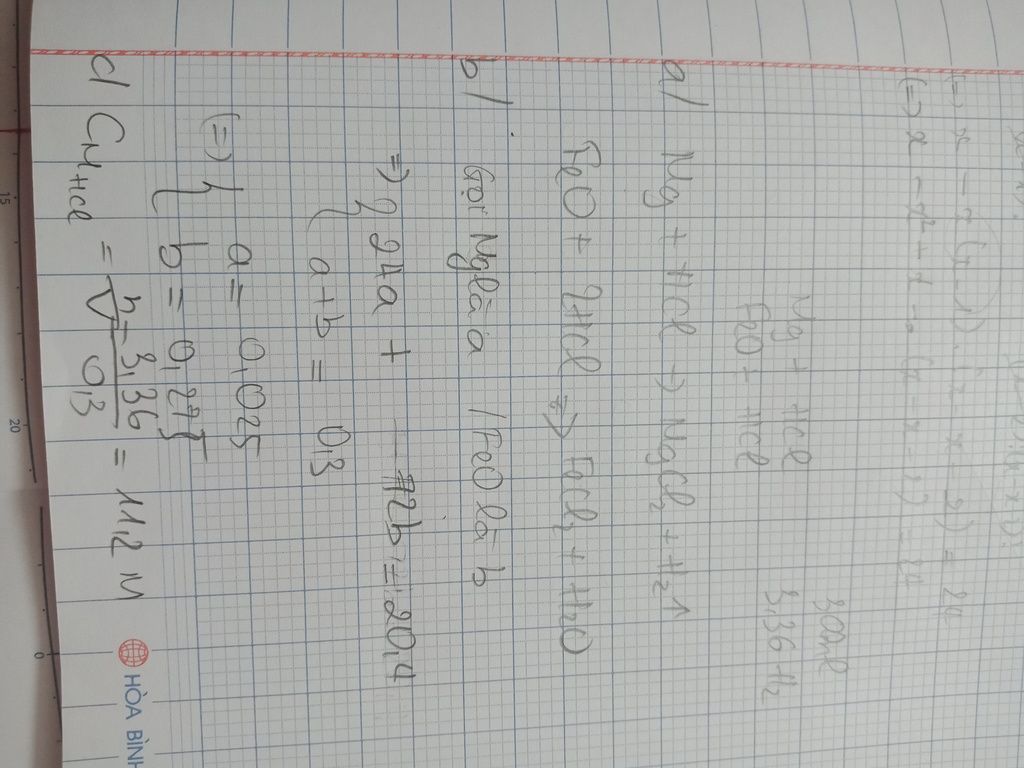 (=) x - 2 (x - 1). (x - x - 2) = 24
(=) x - x² - 1
Mg + HCl 300ml
FeO + HCl 3,36 H₂
a/ Mg + HCl → MgCl₂ + H₂↑
FeO + 2HCl → FeCl₂ + H₂O
b/ Gọi Mg là a / FeO là b
=) { 24a + 72b = 20,4
{ a+b = 0,3
(=) { a = 0,025
{ b = 0,275
d CM HCl = n/V = 3,36/0,3 = 11,2 M
HÒA BÌNH
15
20
0